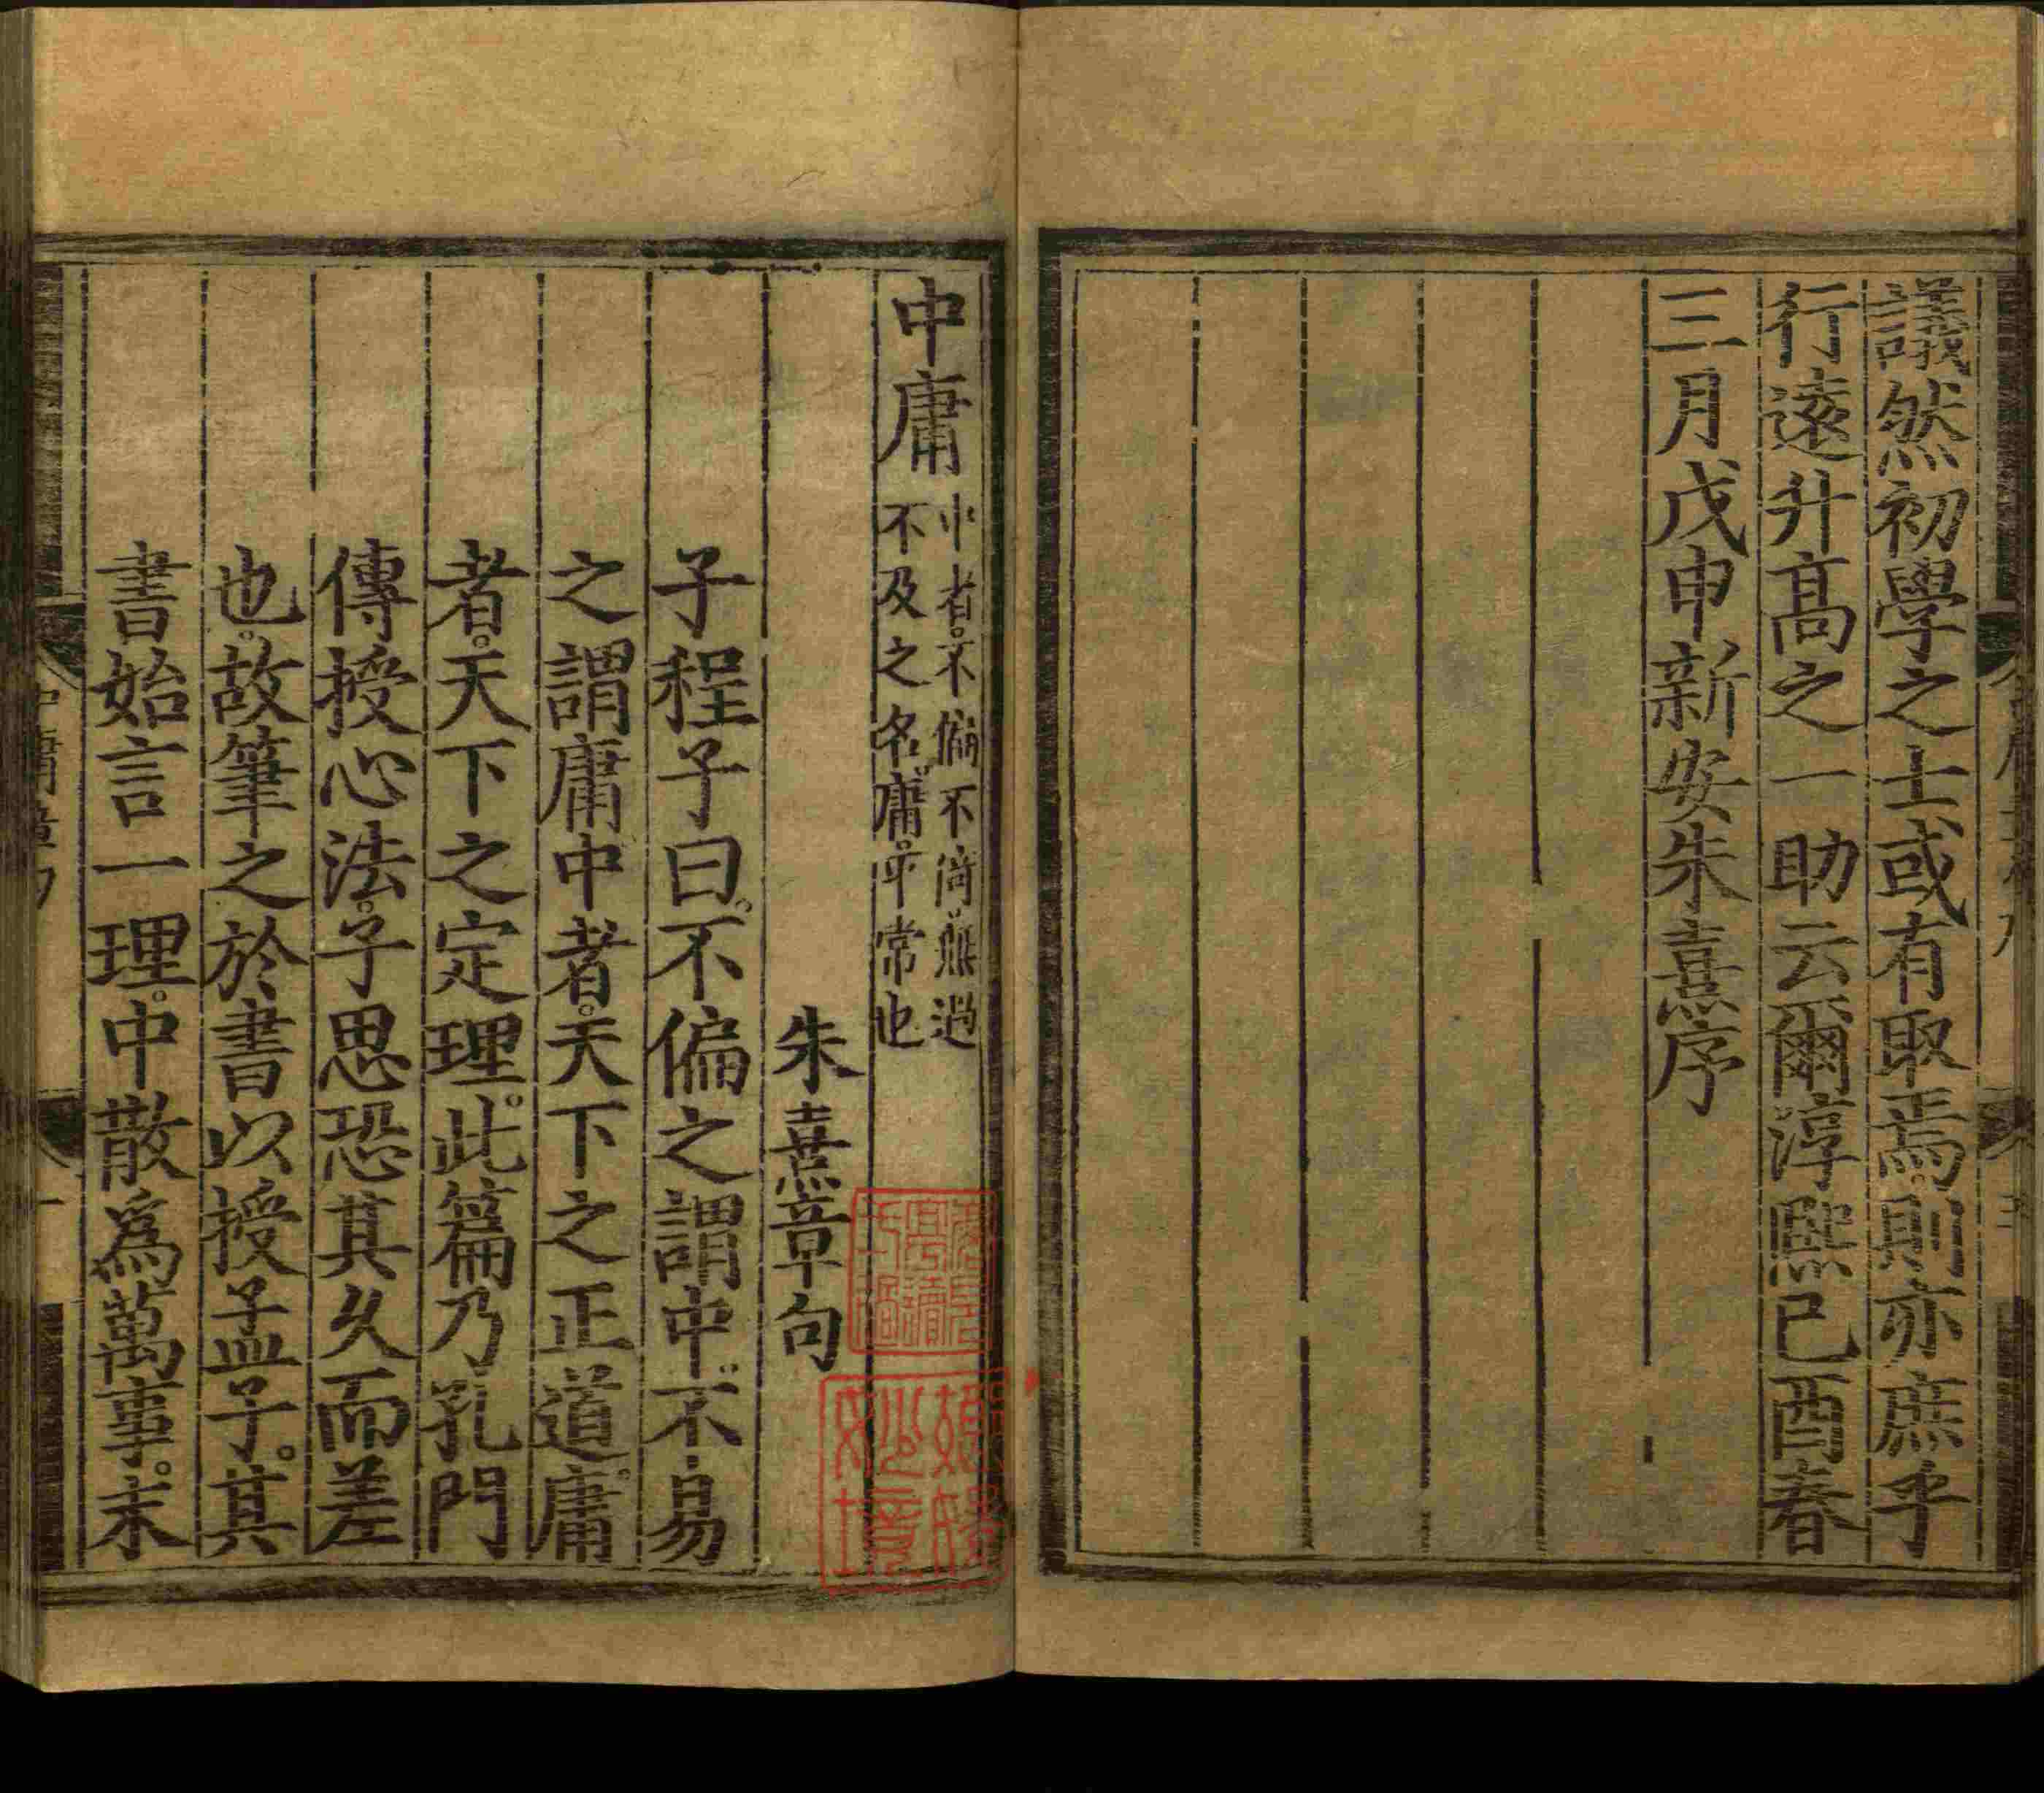 議然初學之士或有取焉則亦庶乎
行遠升高之一助云爾淳熙己酉春
三月戊申新安朱熹序
中庸
中者。不偏不倚無過
不及之名庸。平常也
朱熹章句
子程子曰。不偏之謂中不易
之謂庸中者。天下之正道。庸
者。天下之定理。此篇乃孔門
傳授心法。子思恐其久而差
也。故筆之於書以授孟子。其
書始言一理。中散爲萬事。末